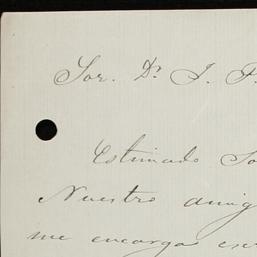 Sor. Dr. J. P.
Estimado So
Nuestro amig
me encarga esc